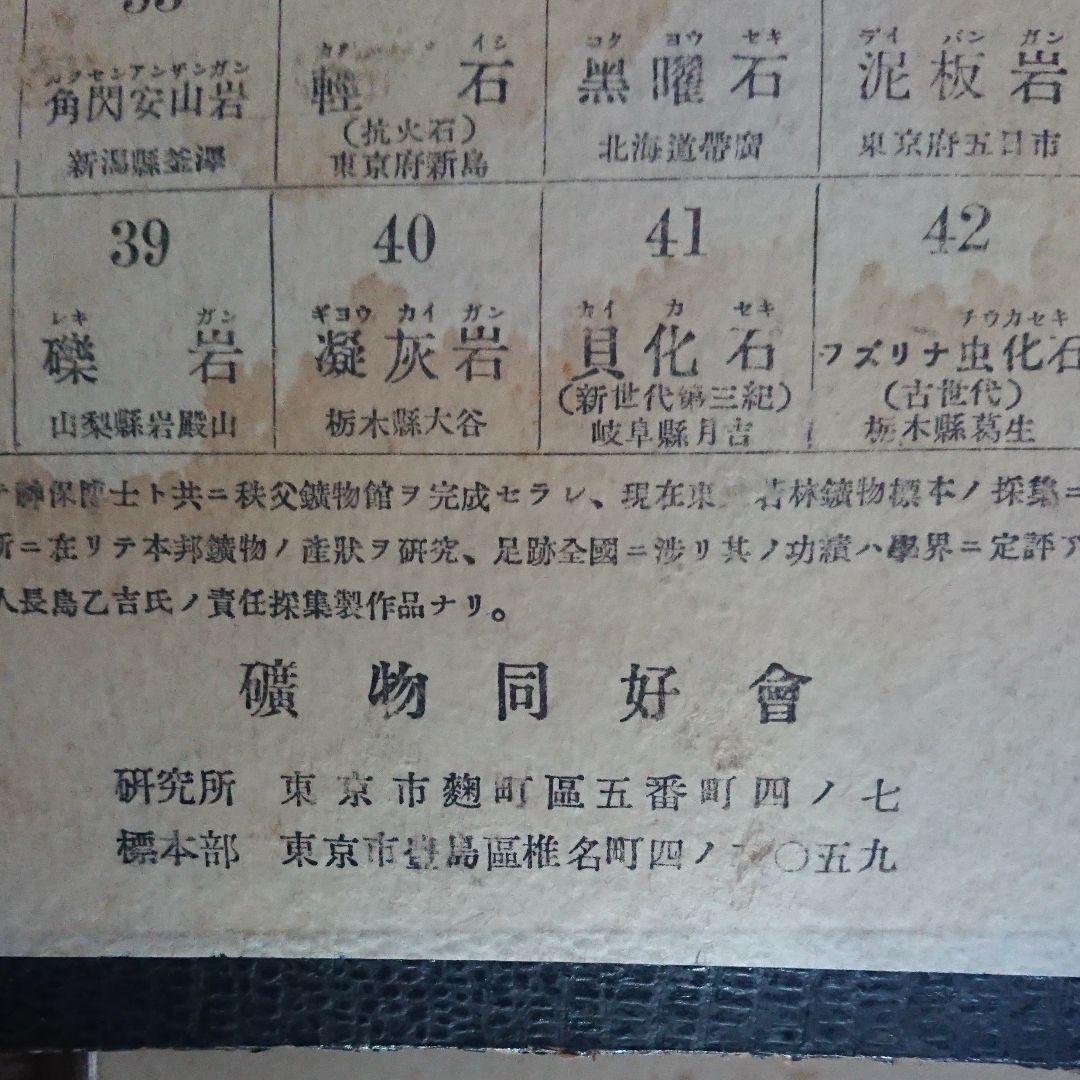 カクセンアンザンガン
角閃安山岩
新潟縣釜澤
イシ
輕石
(抗火石)
東京府新島
コクヨウセキ
黑曜石
北海道帶廣
デイバンガン
泥板岩
東京府五日市
39
レキガン
礫岩
山梨縣岩殿山
40
ギヨウカイガン
凝灰岩
栃木縣大谷
41
カイカセキ
貝化石
(新世代第三紀)
岐阜縣月吉
42
チウカセキ
フズリナ虫化石
(古世代)
栃木縣葛生
神保博士ト共ニ秩父鑛物館ヲ完成セラレ、現在東 若林鑛物標本ノ採集ニ
所ニ在リテ本邦鑛物ノ產狀ヲ研究、足跡全國ニ涉リ其ノ功績ハ學界ニ定評ア
人長島乙吉氏ノ責任採集製作品ナリ。
礦物同好會
研究所 東京市麴町區五番町四ノ七
標本部 東京市豊島區椎名町四ノ 〇五九